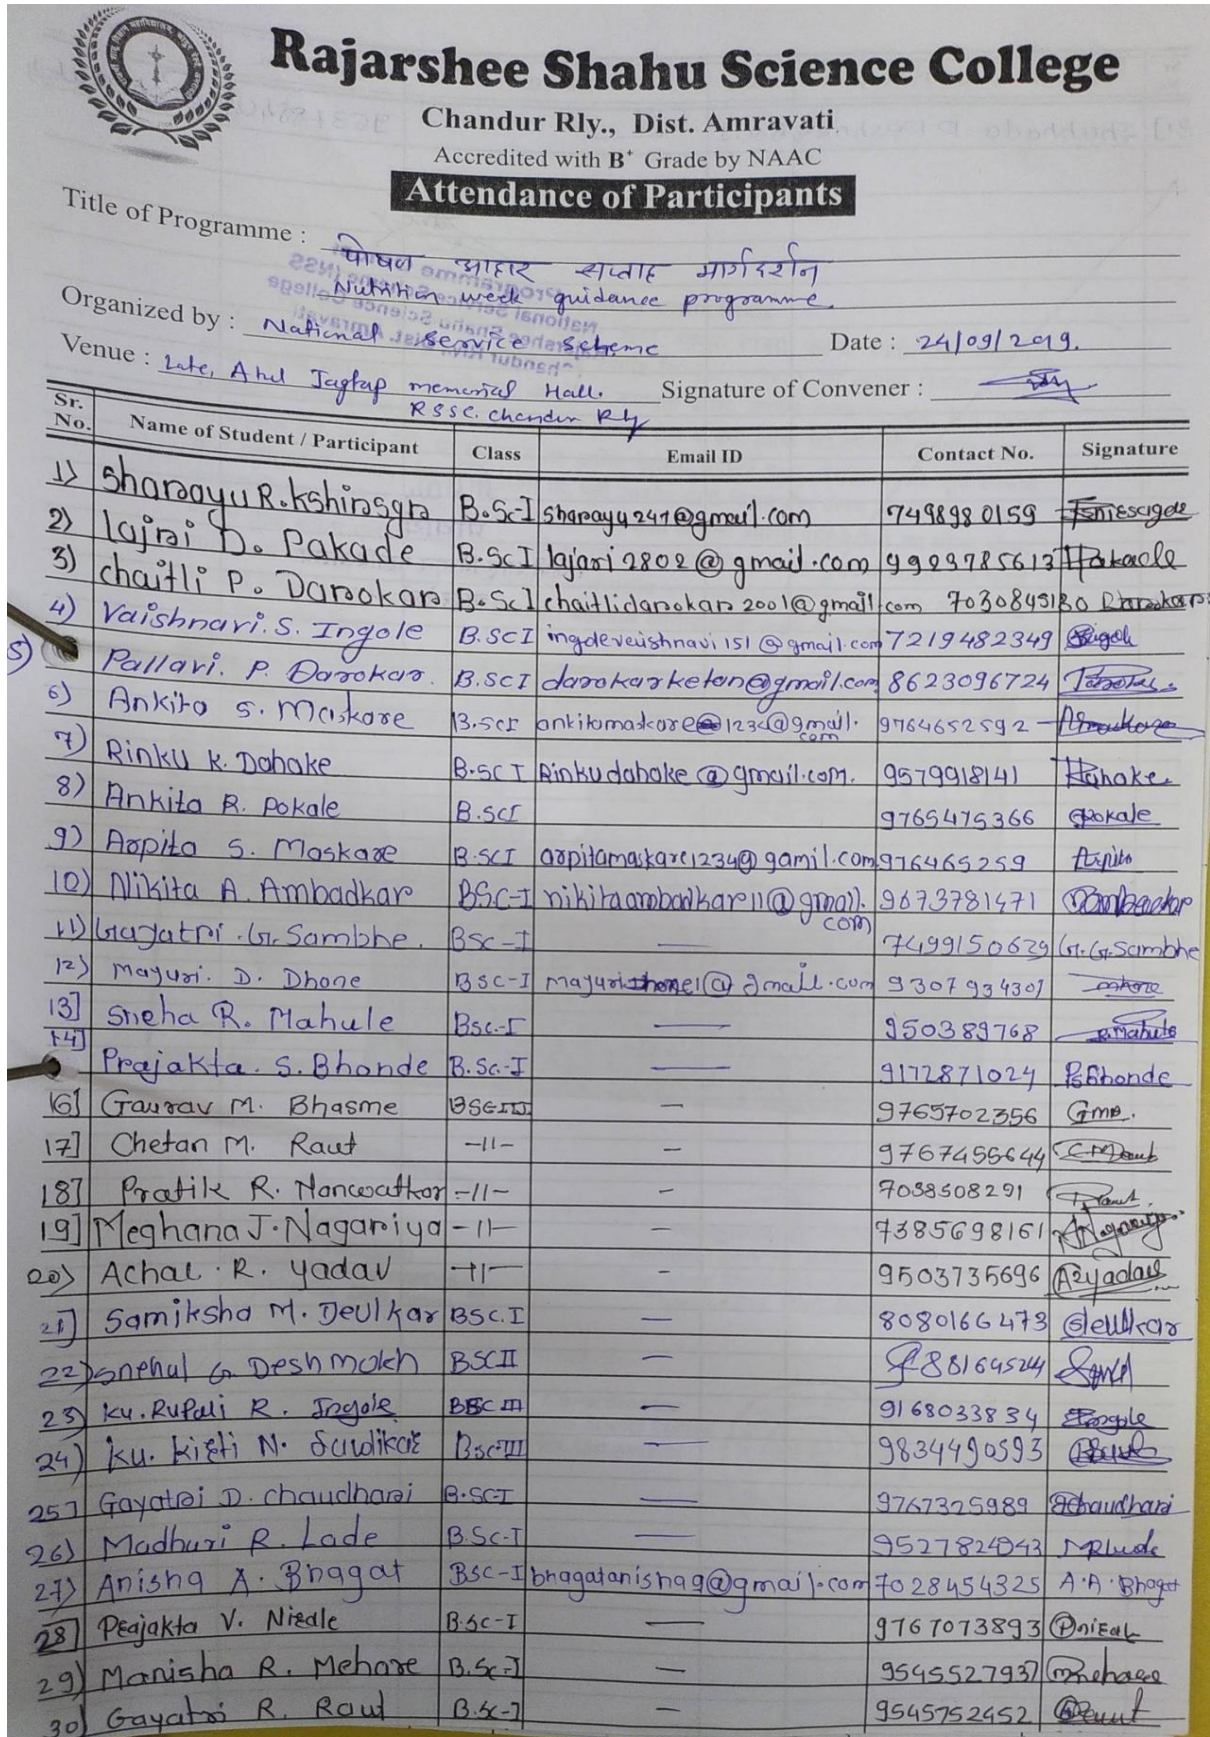 Rajarshee Shahu Science College
Chandur Rly., Dist. Amravati
Accredited with B+ Grade by NAAC
Attendance of Participants
Title of Programme : पोषण आहार सप्ताह मार्गदर्शन
Nutrition week guidance programme.
Organized by : National Service Scheme Date : 24/09/2019.
Venue : Late, Atul Jagtap memorial Hall. Signature of Convener :
RSSC. Chandur Rly
Sr. No. Name of Student / Participant Class Email ID Contact No. Signature
1) Sharayu R. Kshirsgra B.Sc-I sharayu247@gmail.com 7498980159
2) Lajri D. Pakade B.Sc I lajari2802@gmail.com 9923785613 Pakade
3) chaitli P. Darokar B.Sc I chaitlidarokar2001@gmail.com 7030845130 Darokar
4) Vaishnavi. S. Ingole B.Sc I ingoleveishnavi151@gmail.com 7219482349
5) Pallavi. P. Darokar. B.Sc I darokarketan@gmail.com 8623096724
6) Ankita S. Maskare B.Sc I 9764652592
7) Rinku K. Dahake B.Sc I Rinkudahake@gmail.com. 9579918141 Dahake.
8) Ankita R. Pokale B.Sc I 9765475366 Pokale
9) Arpita S. Maskare B.Sc I arpitamaskare1234@gamil.com 976465259 Arpita
10) Nikita A. Ambadkar BSc-I nikitaambadkare11@gmail.com 9673781471 Ambadkar
11) Gagatri. G. Sambhe. BSc-I — 7499150629 G.G.Sambhe
12) Mayuri. D. Dhone BSc-I 9307934307
13] Sneha R. Mahule BSc.-I — 950389768 Mahule
14] Prajakta. S. Bhonde B.Sc.-I — 9172871024 P.S Bhonde
16] Gaurav M. Bhasme BSc III — 9765702356 Gmb.
17] Chetan M. Raut -11- — 9767455644
18] Pratik R. Nanwatkar -11- — 7038508291
19] Meghana J. Nagariya -11- 7385698161
20) Achal. R. Yadav -11- — 9503735696 A2yadav
21] Samiksha M. Deulkar BSc.I — 8080166473 Deulkar
22) Snehal G. Deshmokh BSC II —
23) Ku. Rupali R. Ingole BSC III — 9168033834 Ingole
24) Ku. Kirti N. BSc-III — 9834490593
25] Gayatri D. Chaudhari B.Sc I — 9767325989 Chaudhari
26) Madhuri R. Lade B.Sc-I — 9527824043
27) Anisha A. Bhagat BSc-I bhagatanishag@gmail.com 7028454325 A.A.Bhagat
28] Prajakta V. Nirale B.Sc-I — 9767073893
29) Manisha R. Mehare B.Sc-I — 9545527937 Mehare
30) Gayatri R. Raut B.Sc-I — 9545752452 Raut